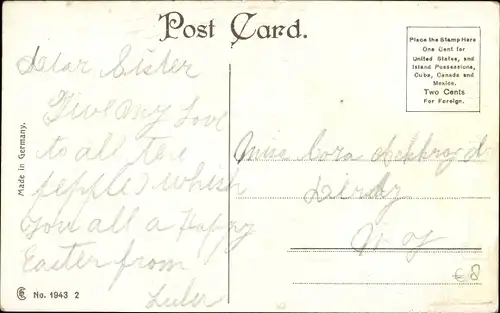 Post Card.
Place the Stamp Here
One Cent for
United States, and
Island Possessions,
Cuba, Canada and
Mexico.
Two Cents
For Foreign.
Dear Sister
Give My Love
to all the
people) whish
you all a Happy
Easter from
Miss Cora
N Y
€8
Made in Germany.
No. 1943 2